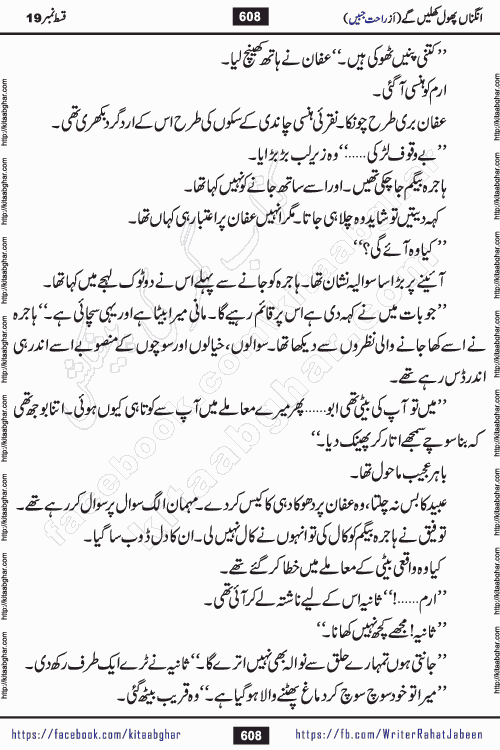 انگناں پھول کھلیں گے (از راحت جبیں)
608
قسط نمبر 19
’’کتنی پنیں ٹھوکی ہیں۔‘‘ عفان نے ہاتھ کھینچ لیا۔
ارم کو ہنسی آ گئی۔
عفان بری طرح چونکا۔ نقرئی ہنسی چاندی کے سکوں کی طرح اس کے اردگرد بکھری تھی۔
’’بے وقوف لڑکی......‘‘ وہ زیرلب بڑبڑایا۔
ہاجرہ بیگم جا چکی تھیں۔ اور اسے ساتھ جانے کو نہیں کہا تھا۔
کہہ دیتیں تو شاید وہ چلا ہی جاتا۔ مگر انہیں عفان پر اعتبار ہی کہاں تھا۔
’’کیا وہ آئے گی؟‘‘
آئینے پر بڑا سا سوالیہ نشان تھا۔ ہاجرہ کو جانے سے پہلے اس نے دوٹوک لہجے میں کہا تھا۔
’’جو بات میں نے کہہ دی ہے اس پر قائم رہیے گا۔ مانی میرا بیٹا ہے اور یہی سچائی ہے۔‘‘ ہاجرہ
نے اسے کھا جانے والی نظروں سے دیکھا تھا۔ سوالوں، خیالوں اور سوچوں کے منصوبے اسے اندر ہی
اندر ڈس رہے تھے۔
’’میں تو آپ کی بیٹی تھی ابو...... پھر میرے معاملے میں آپ سے کوتاہی کیوں ہوئی۔ اتنا بوجھ تھی
کہ بنا سوچے سمجھے اتار کر پھینک دیا۔‘‘
باہر عجیب ماحول تھا۔
عبید کا بس نہ چلتا، وہ عفان پر دھوکا دہی کا کیس کر دے۔ مہمان الگ سوال پر سوال کر رہے تھے۔
توفیق نے ہاجرہ بیگم کو کال کی تو انہوں نے کال نہیں لی۔ ان کا دل ڈوب سا گیا۔
کیا وہ واقعی بیٹی کے معاملے میں خطا کر گئے تھے۔
’’ارم......!‘‘ ثانیہ اس کے لیے ناشتہ لے کر آئی تھی۔
’’ثانیہ! مجھے کچھ نہیں کھانا۔‘‘
’’جانتی ہوں تمہارے حلق سے نوالہ بھی نہیں اترے گا۔‘‘ ثانیہ نے ٹرے ایک طرف رکھ دی۔
’’میرا تو خود سوچ سوچ کر دماغ پھٹنے والا ہو گیا ہے۔‘‘ وہ قریب بیٹھ گئی۔
https://facebook.com/kitaabghar
608
https://fb.com/WriterRahatJabeen
http://kitaabghar.com
facebook.com/kitaabghar
kitaabghar.com